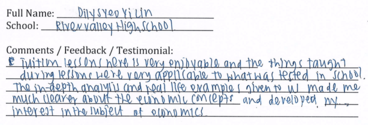 Full Name: Dilys Yeo Yi Lin
School: River Valley High School
Comments / Feedback / Testimonial:
Tuition lessons here is very enjoyable and the things taught
during lessons were very applicable to what was tested in school.
The in-depth analysis and real life examples given to us made me
much clearer about the economic concepts and developed my
interest in the subject of economics.